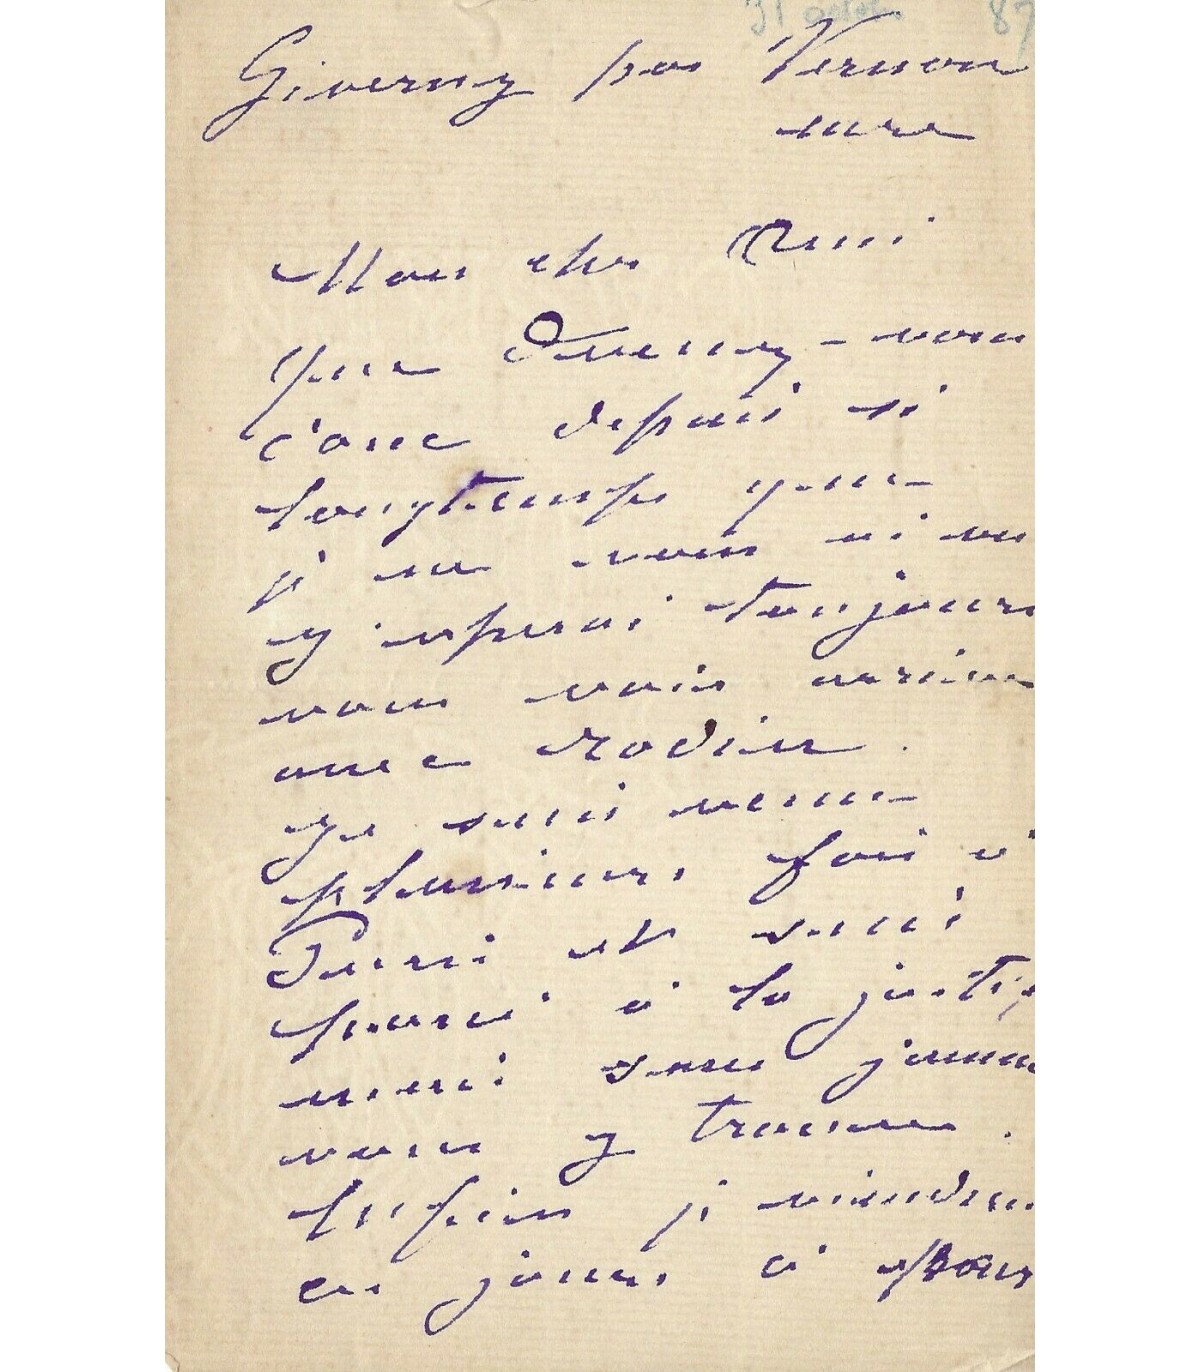 31 octob. 87
Giverny par Vernon
eure
Mon cher Ami
Que Devenez-vous
donc depuis si
longtemps que
je ne vous ai vu
j'esperai toujours
vous voir arriver
avec Rodin.
Je suis venu
plusieurs fois à
Paris et suis
passé à la justice
mais sans jamais
vous y trouver.
Enfin je viendrai
ces jours ci